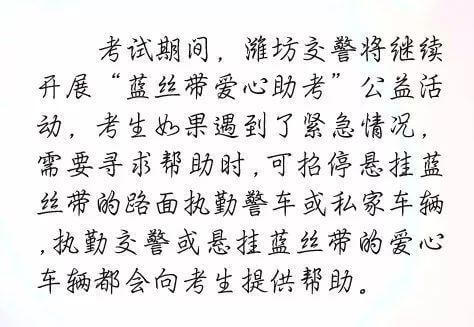 考试期间，潍坊交警将继续
开展“蓝丝带爱心助考”公益活
动，考生如果遇到了紧急情况，
需要寻求帮助时,可招停悬挂蓝
丝带的路面执勤警车或私家车辆
,执勤交警或悬挂蓝丝带的爱心
车辆都会向考生提供帮助。